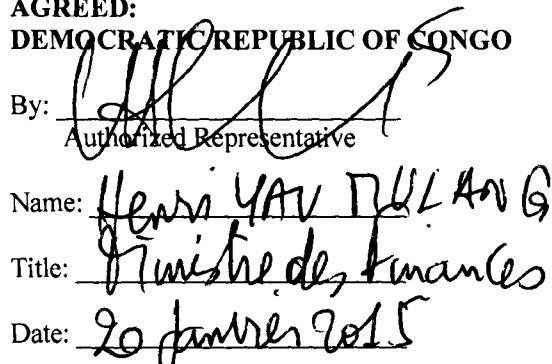 AGREED:
DEMOCRATIC REPUBLIC OF CONGO
By:
Authorized Representative
Name: Henri YAV MULANG
Title: Ministre des Finances
Date: 20 Janvier 2015